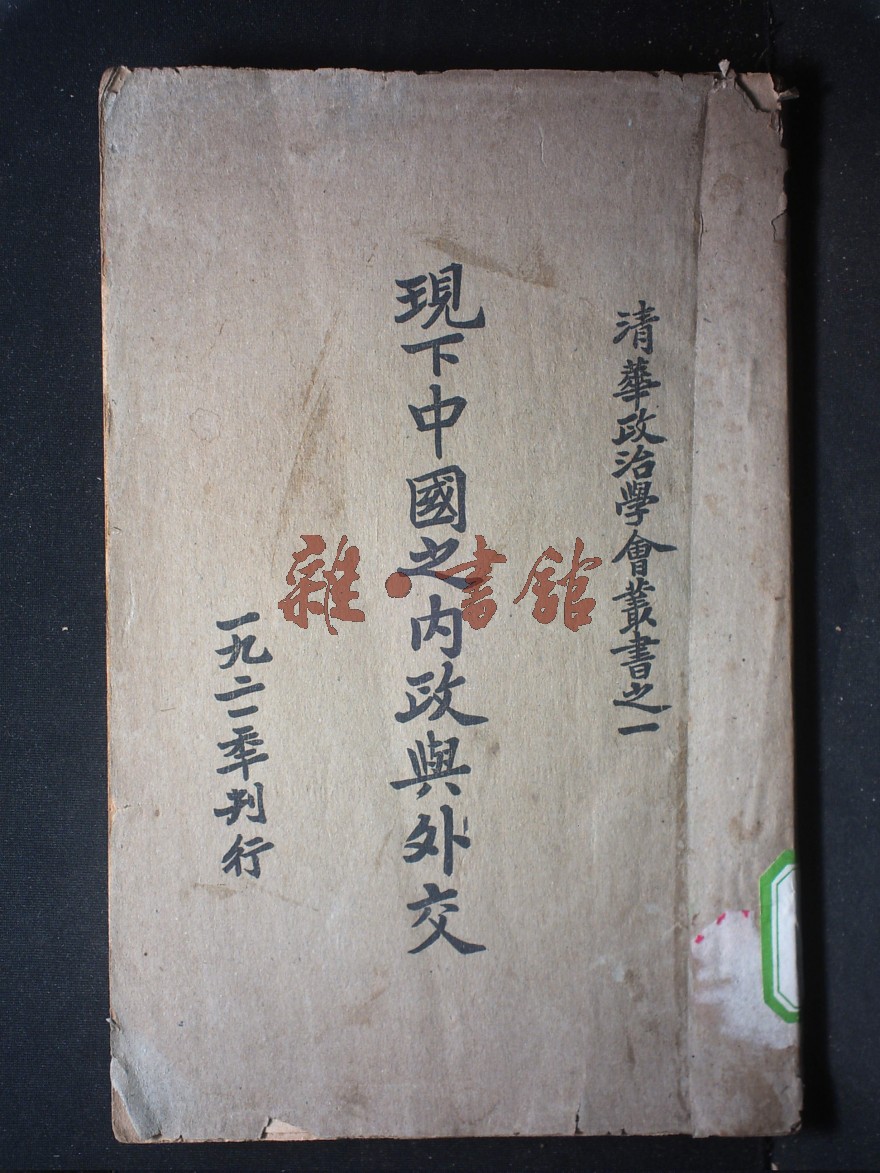 清華政治學會叢書之一
現下中國之内政與外交
一九二一年刋行
雜·書舘